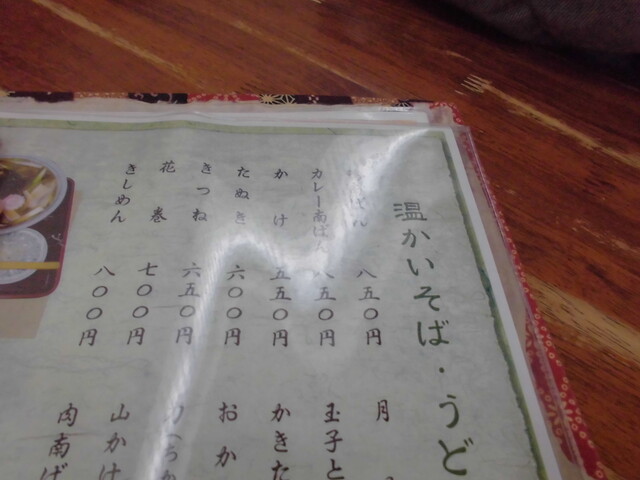 温かいそば・うど
八五〇円
カレー南ばん 八五〇円
かけ 五五〇円
たぬき 六〇〇円
きつね 六五〇円
花巻 七〇〇円
きしめん 八〇〇円
月
玉子と
かきた
おか
山かけ
肉南ば